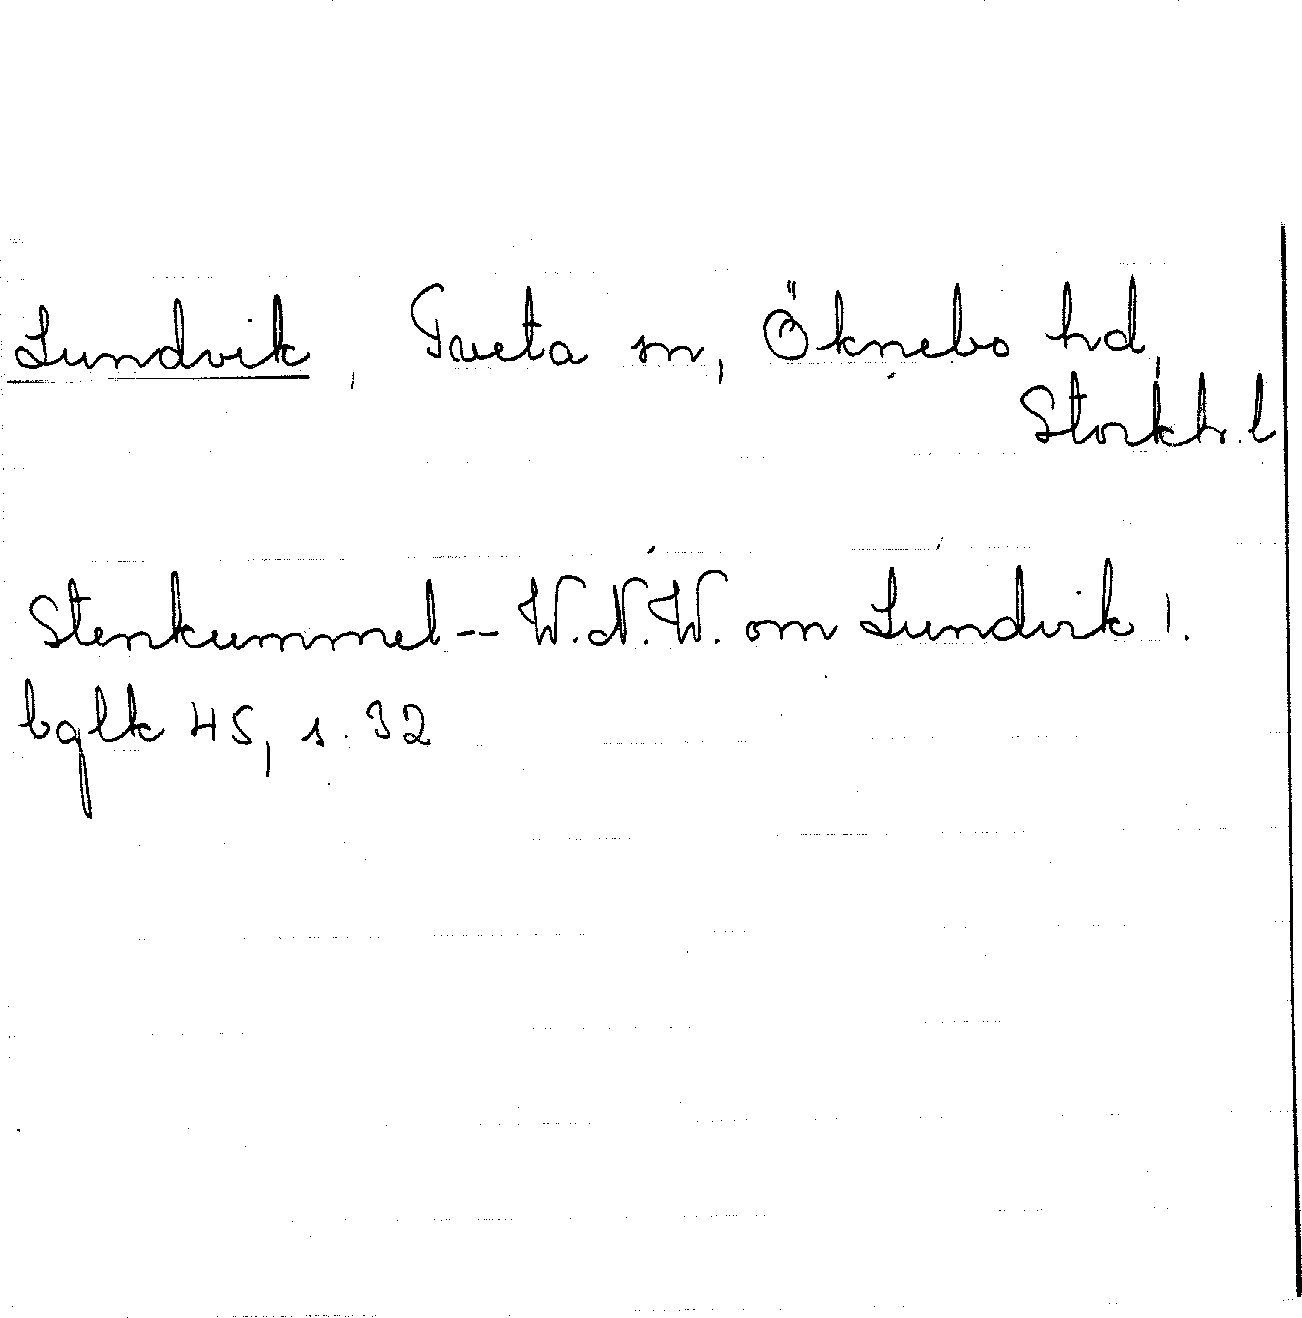 Lundvik, Tveta sn, Öknebo hd,
Stockh. l
Stenkummel -- W.N.W. om Lundvik 1.
bglk 45, s. 32